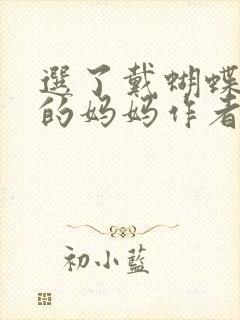 選了戴蝴蝶
的妈妈作者
初小藍